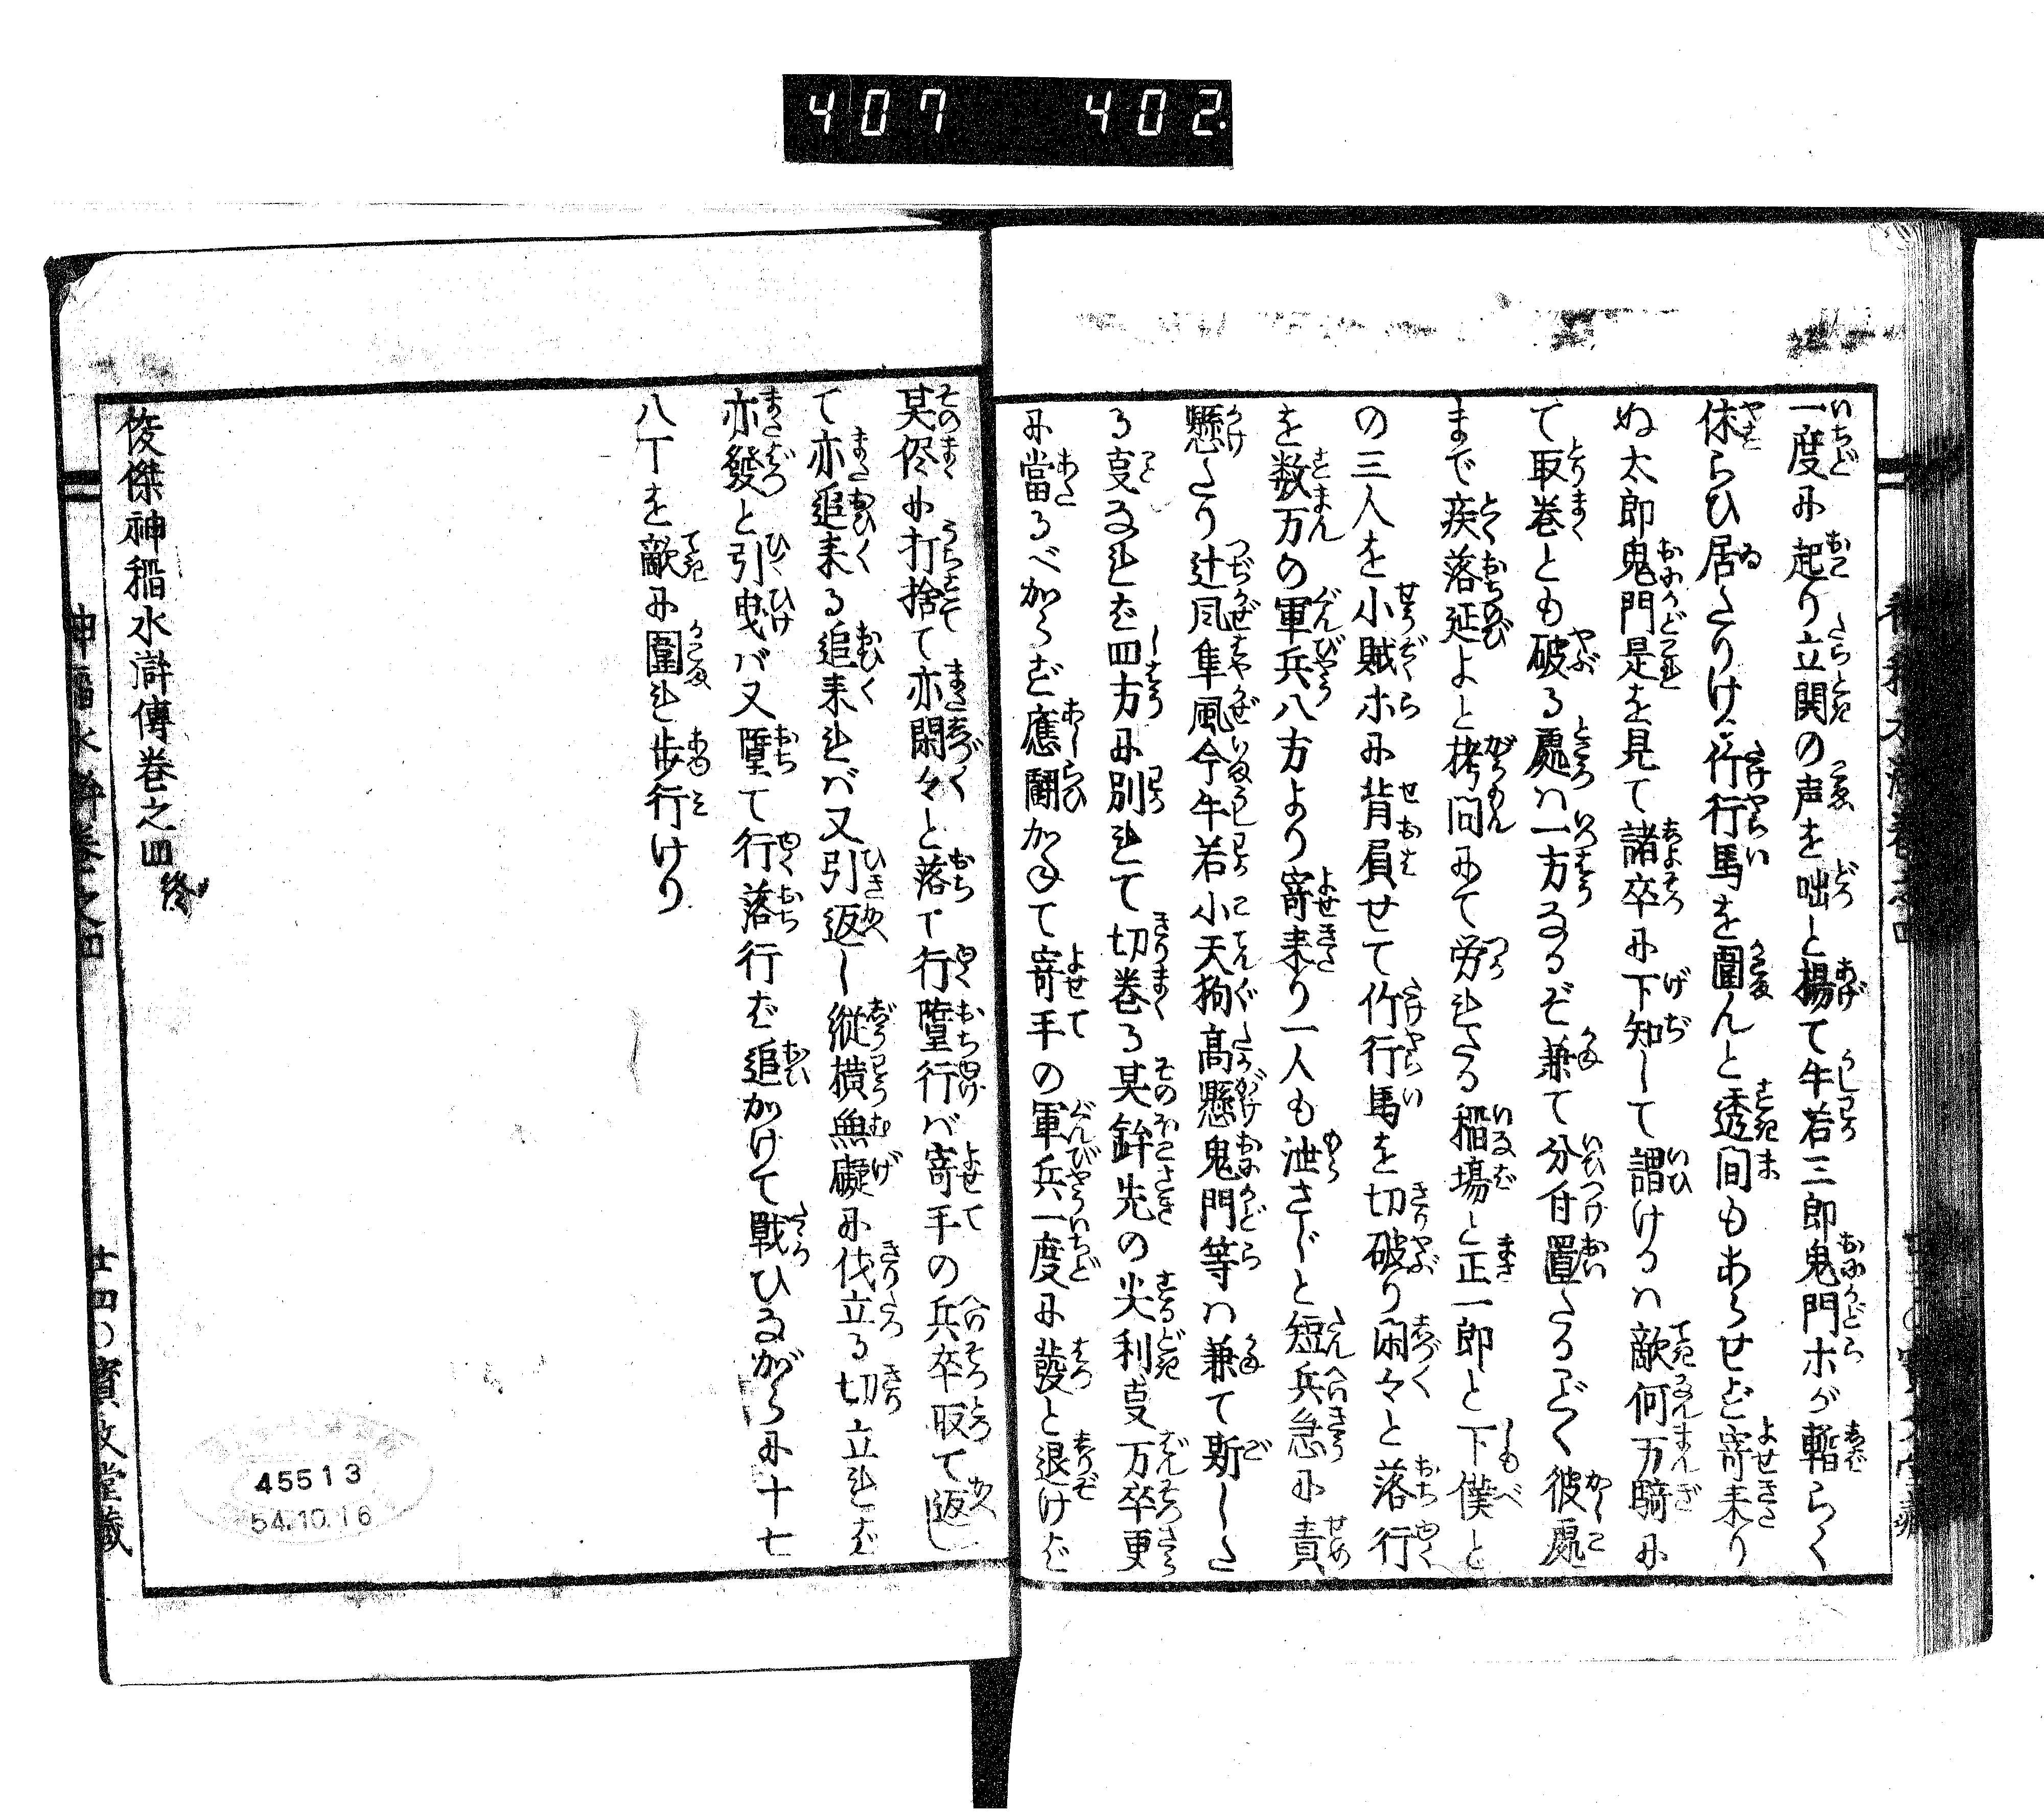 407 402.
一度に起り立関の声を咄と揚て牛若三郎鬼門ホが暫らく
休らひ居たりける竹行馬を圍んと透間もあらせず寄来り
ぬ太郎鬼門是を見て諸卒に下知して謂けるハ敵何万騎に
て取巻とも破る處ハ一方なるぞ兼て分付置たるごとく彼處
まで疾落延よと拷問にて労れたる稲場と正一郎と下僕と
の三人を小賊ホに背屓せて竹行馬を切破り閑々と落行
を数万の軍兵八方より寄来り一人も泄さじと短兵急に責
懸たり辻風隼風今牛若小天狗髙懸鬼門等ハ兼て斯した
る㕝なれば四方に別れて切巻る其鉾先の尖利㕝万卒更
に當るべからず應闘かねて寄手の軍兵一度に發と退けば
其侭に打捨て亦閑々と落て行墮行バ寄手の兵卒取て返し
て亦追来る追来れバ又引返し縦横無礙に伐立る切立れば
亦發と引曳バ又墮て行落行ば追かけて戰ひながらに十七
八丁を敵に圍れ歩行けり
俊傑神稲水滸傳巻之四終
神稲水滸巻之四
廿四〇寳文堂藏
45513
54.10.16